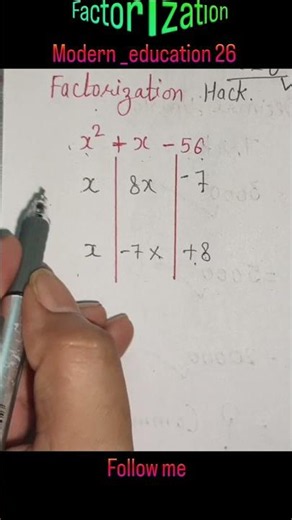 Factorization
Modern _education 26
Factorization Hack.
x² + x - 56
x 8x -7
x -7x +8
Follow me